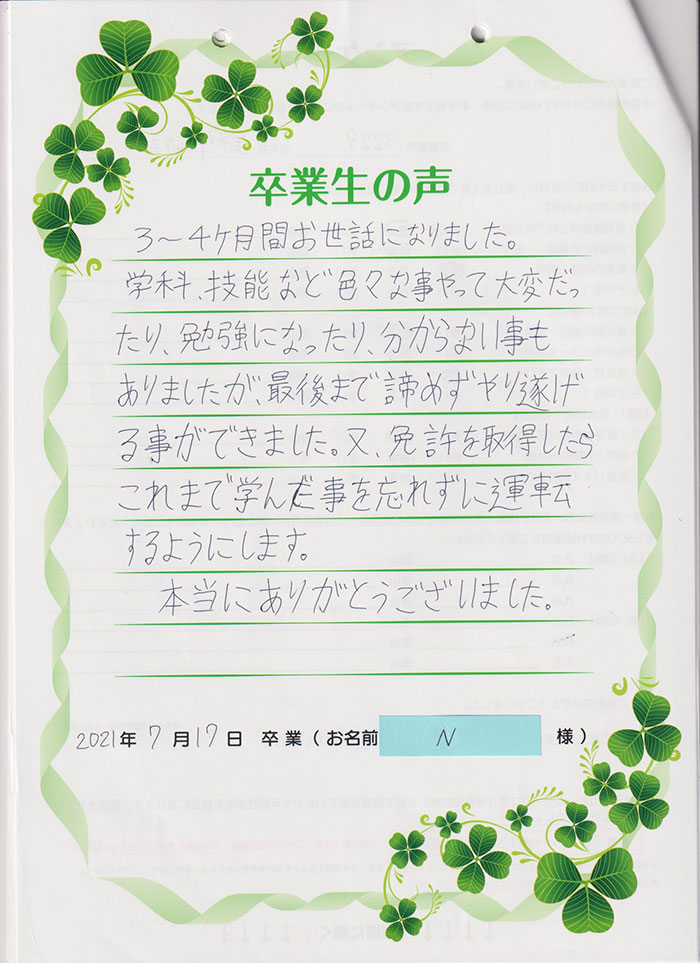 卒業生の声
3〜4ヶ月間お世話になりました。
学科、技能など色々な事やって大変だっ
たり、勉強になったり、分からない事も
ありましたが、最後まで諦めずやり遂げ
る事ができました。又、免許を取得したら
これまで学んだ事を忘れずに運転
するようにします。
本当にありがとうございました。
2021年 7月17日 卒業(お名前 N 様)